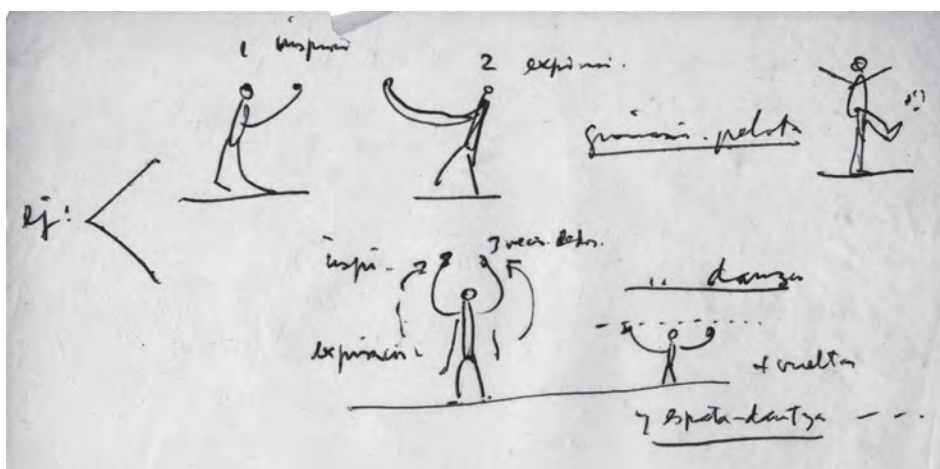 1 inspiració
2 expirac.
gimnasia. pelota
ej:
inspi.
3 veces
expiración
" danza
+ vueltas
y espata-dantza - - -.